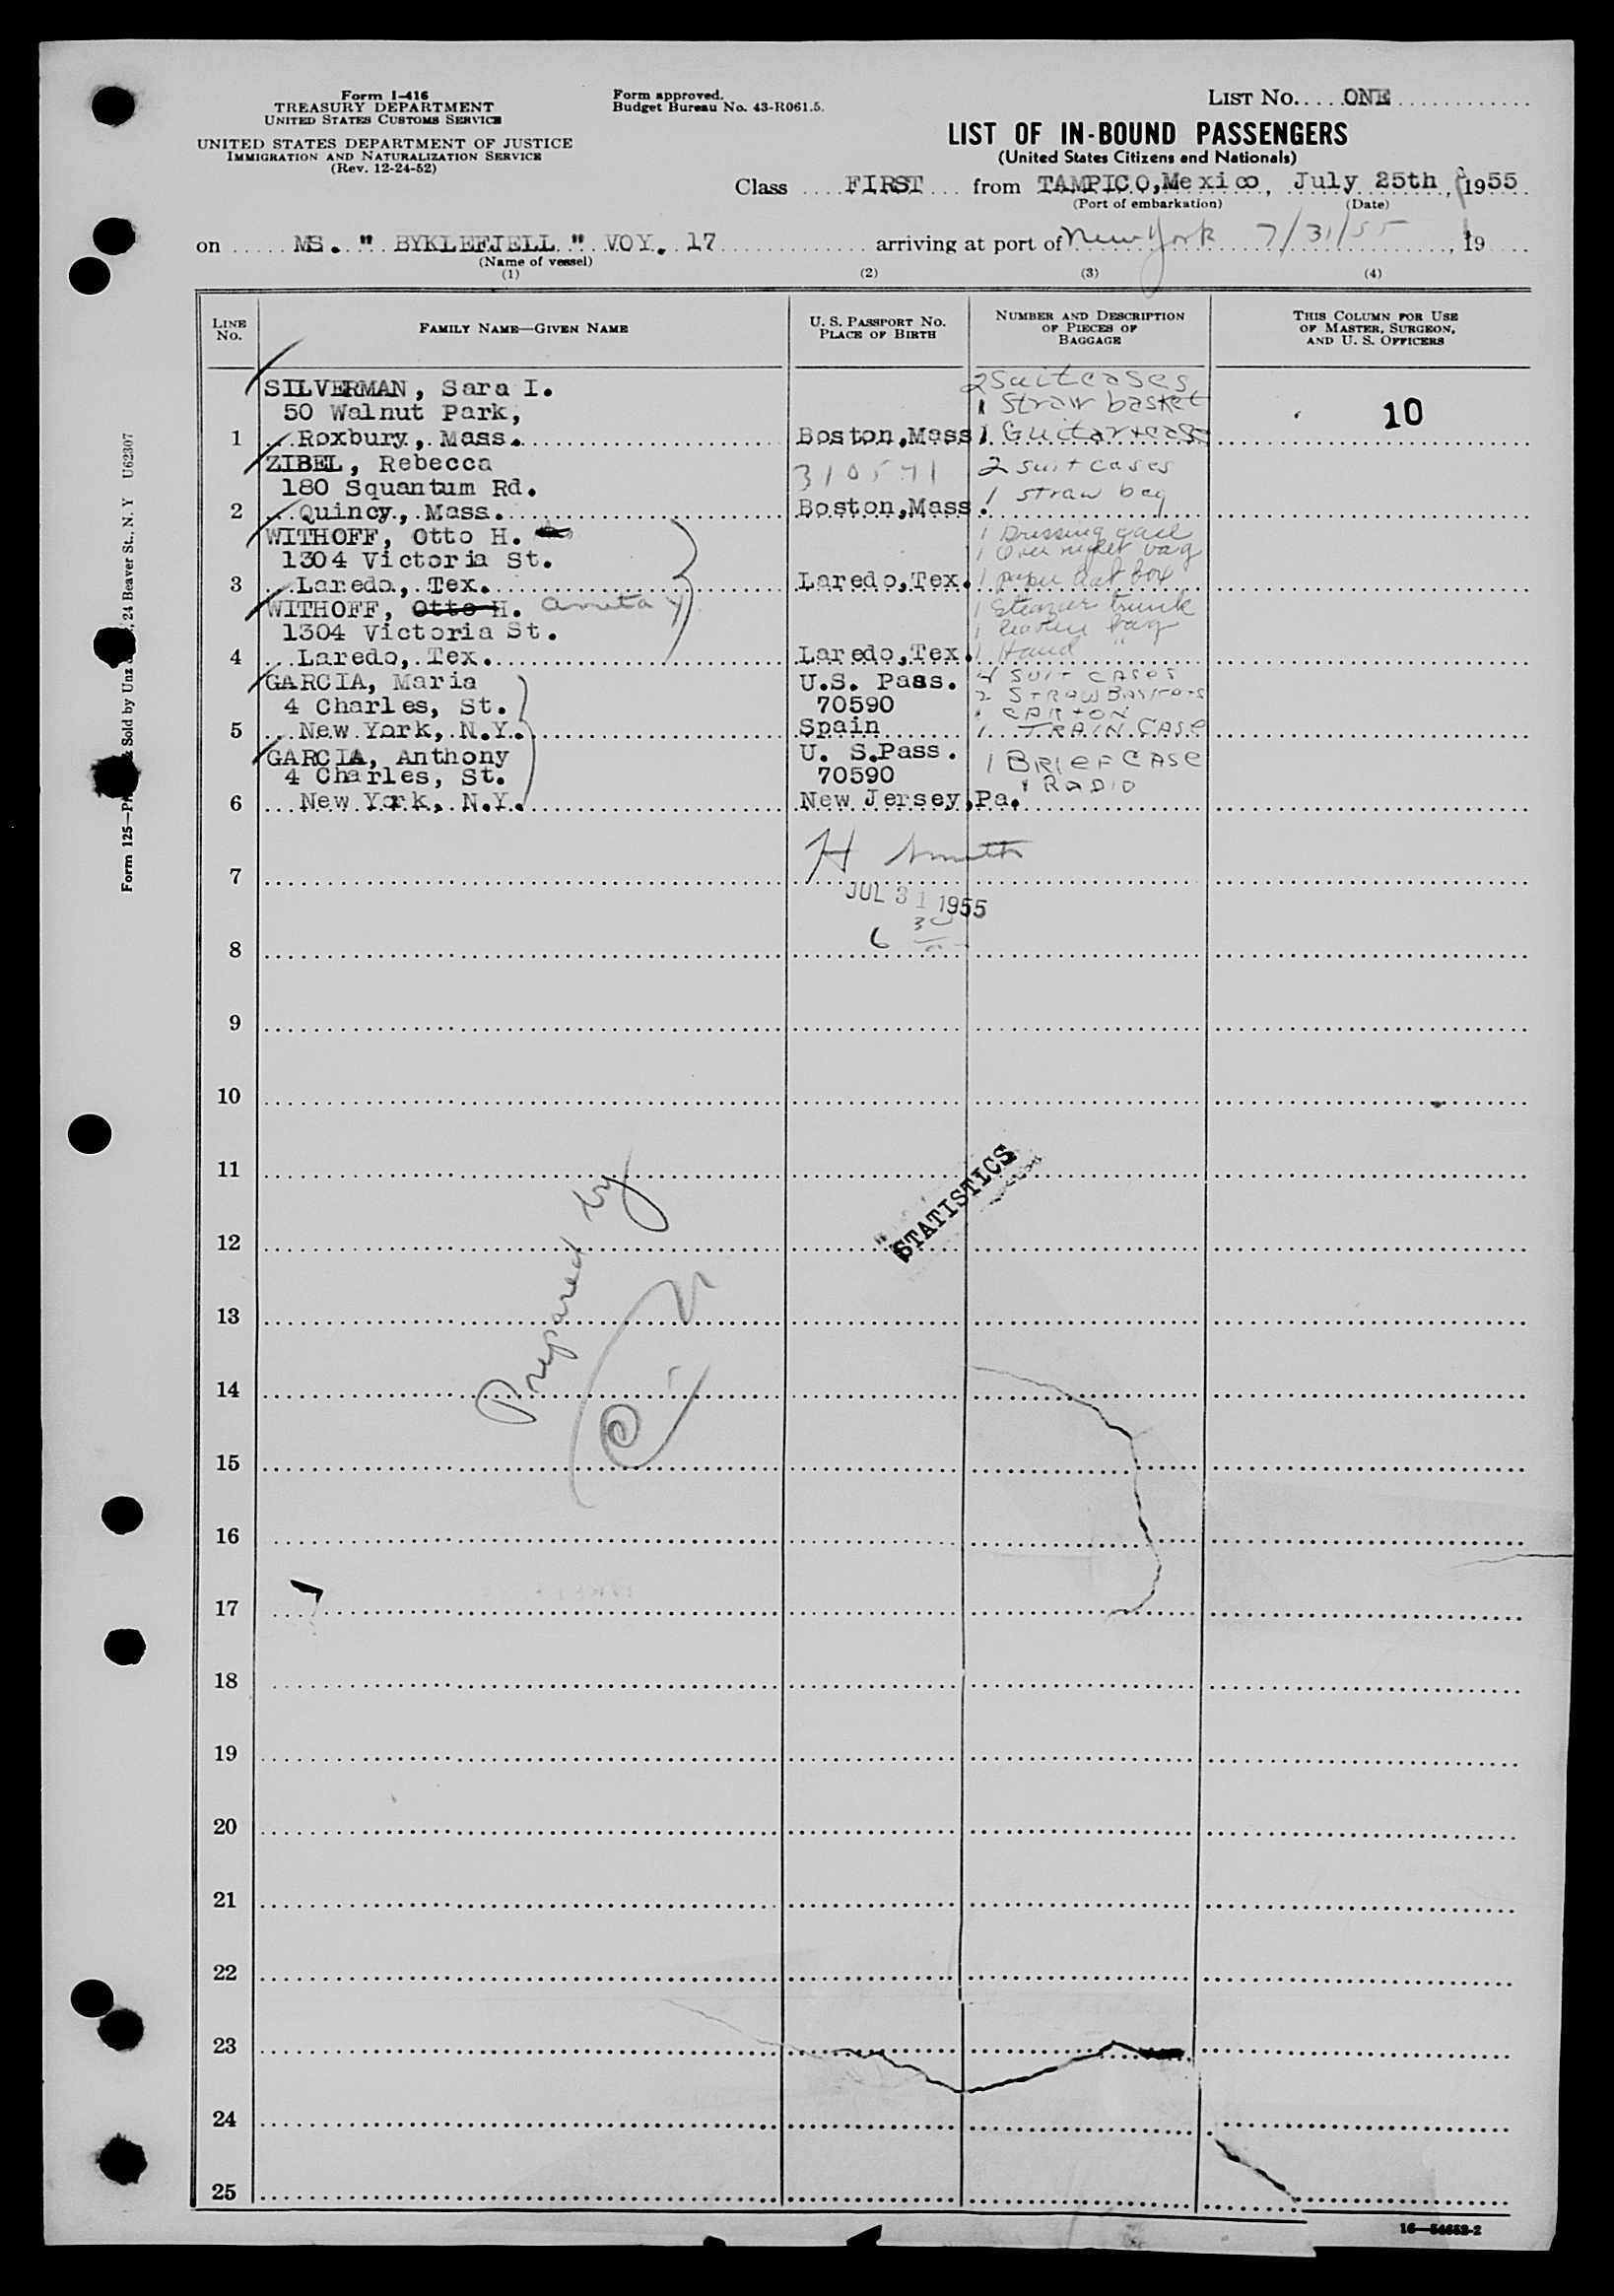 Form I-416
TREASURY DEPARTMENT
UNITED STATES CUSTOMS SERVICE
UNITED STATES DEPARTMENT OF JUSTICE
IMMIGRATION AND NATURALIZATION SERVICE
(Rev. 12-24-52)
Form approved.
Budget Bureau No. 43-R061.5.
LIST No. ONE
LIST OF IN-BOUND PASSENGERS
(United States Citizens and Nationals)
Class FIRST from TAMPICO, Mexico, July 25th, 1955
(Port of embarkation) (Date)
on MS. " BYKLEFJELL " VOY. 17 arriving at port of New York 7/31/55, 19
(Name of vessel)
(1) (2) (3) (4)
LINE No.
FAMILY NAME—GIVEN NAME
U. S. PASSPORT NO. PLACE OF BIRTH
NUMBER AND DESCRIPTION OF PIECES OF BAGGAGE
THIS COLUMN FOR USE OF MASTER, SURGEON, AND U. S. OFFICERS
SILVERMAN, Sara I. 2 Suitcases
50 Walnut Park, 1 Straw basket 10
1 Roxbury, Mass. Boston, Mass 1 Guitar case
ZIBEL, Rebecca 310571 2 suitcases
180 Squantum Rd. 1 straw bag
2 Quincy, Mass. Boston, Mass.
WITHOFF, Otto H. 1 Dressing case
1304 Victoria St. 1 Over night bag
3 Laredo, Tex. Laredo, Tex. 1 paper hat box
WITHOFF, Otto H. Anita Y. 1 Steamer trunk
1304 Victoria St. 1 bag
4 Laredo, Tex. Laredo, Tex. 1 Hand "
GARCIA, Maria U.S. Pass. 4 SUIT CASES
4 Charles, St. 70590 2 STRAW BASKETS
1 CARTON
5 New York, N.Y. Spain 1 TRAIN CASE
GARCIA, Anthony U. S.Pass. 1 BRIEF CASE
4 Charles, St. 70590 1 RADIO
6 New York, N.Y. New Jersey, Pa.
H Smith
7
JUL 31 1955
6 30
8
9
10
11
STATISTICS
12
Prepared by
13
14
15
16
17
18
19
20
21
22
23
24
25
16—54652-2
24 Beaver St., N. Y U62307
Form 125—
& Sold by Unz